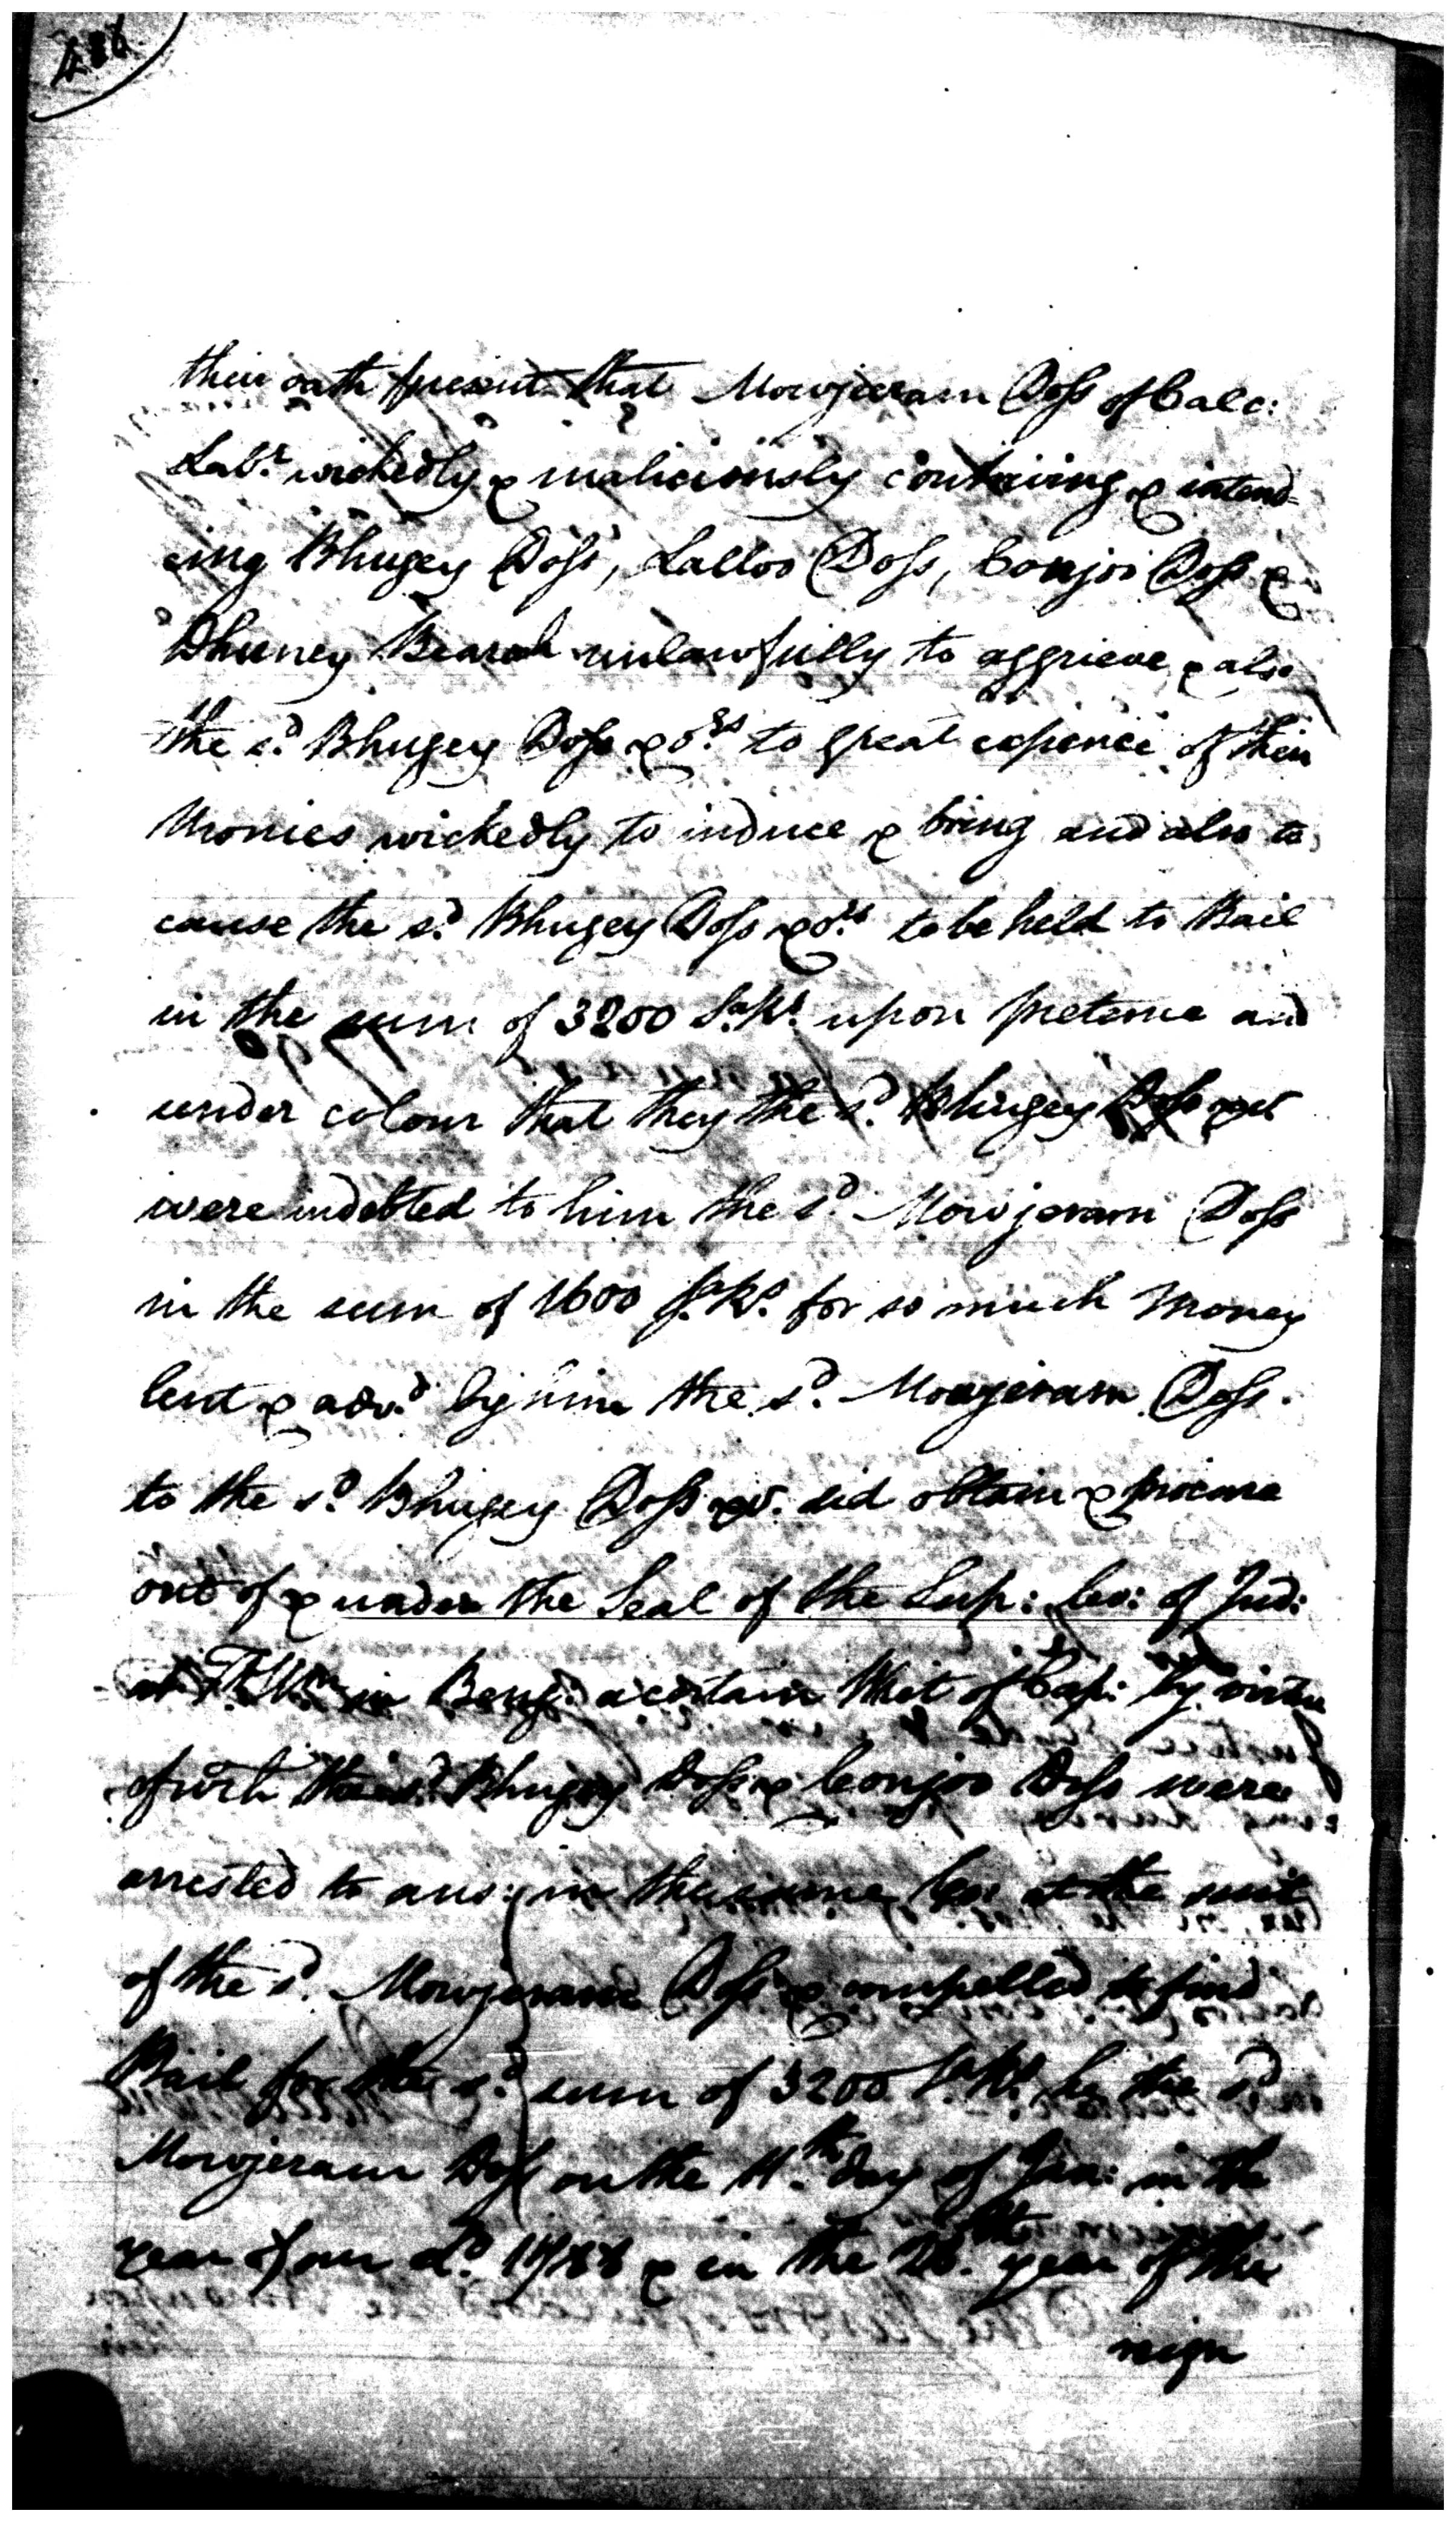 their oath present that Mowjeeram Doss of Calc:
Labr. wickedly & maliciously contriving & intend=
ing Bhugey Doss, Lalloo Doss, Conjoo Doss &
Dhuney Bearah unlawfully to aggrieve & also
the sd. Bhugey Doss & ors to great expence of their
Monies wickedly to induce & bring and also to
cause the sd. Bhugey Doss & ors to be held to Bail
in the sum of 3200 Sa.Rs. upon pretence and
under colour that they the sd. Bhugey Doss & ors
were indebted to him the sd. Mowjeram Doss
in the sum of 1600 Sa.Rs. for so much Money
lent & advd. by him the sd. Mowjeram Doss.
to the sd. Bhugey Doss & o. did obtain & procure
out of & under the Seal of the Sup: Co: of Jud:
at Ft. Wm. in Beng: a certain Writ of Cap: by virtue
of wch the sd. Bhugey Doss & Conjoo Doss were
arrested to ans: in the same Co: at the suit
of the sd. Mowjeram Doss & compelled to find
Bail for the sd. sum of 3200 Sa.Rs. he the sd
Mowjeram Doss on the 11th. day of Jan: in the
year of our Ld. 1788 & in the 28th. year of the
reign